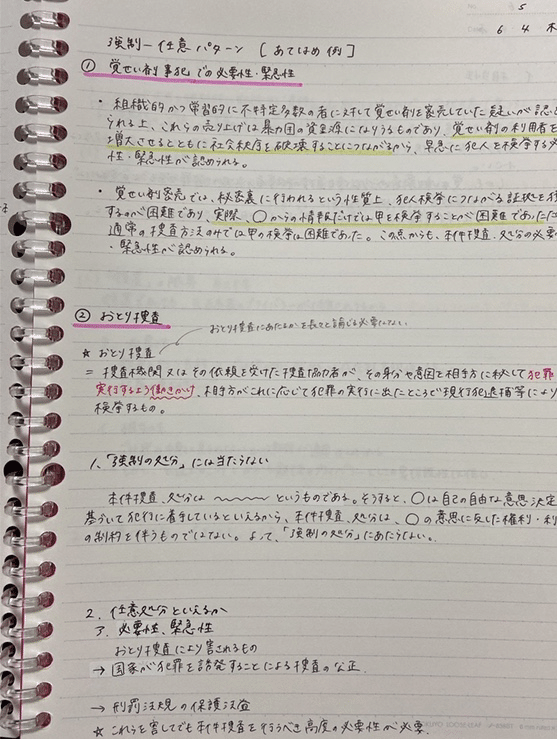 5
6 4 木
強制ー任意パターン [あてはめ例]
① 覚せい剤事犯での必要性・緊急性
・組織的かつ常習的に不特定多数の者に対して覚せい剤を密売していた疑いが認め
られる上、これらの売り上げは暴力団の資金源になりうるものであり、覚せい剤の利用者を
増大させるとともに社会秩序を破壊することにつながるから、早急に犯人を検挙する必
性・緊急性が認められる。
・覚せい剤密売では、秘密裏に行われるという性質上、犯人検挙につながる証拠を
するのが困難であり、実際、〇からの情報だけでは甲を検挙することが困難であった
通常の捜査方法のみでは甲の検挙は困難であった。この点からも、本件捜査・処分の必要
・緊急性が認められる。
② おとり捜査
おとり捜査にあたるかを長々と論じる必要はない
☆ おとり捜査
= 捜査機関又はその依頼を受けた捜査協力者が、その身分や意図を相手方に秘して犯罪
実行するよう働きかけ、相手方がこれに応じて犯罪の実行に出たところで現行犯逮捕等により
検挙するもの。
1、「強制の処分」には当たらない
本件捜査、処分は 〜〜〜 というものである。そうすると、〇は自己の自由な意思決定
基づいて犯行に着手しているといえるから、本件捜査、処分は、〇の意思に反した権利・利
の制約を伴うものではない。よって、「強制の処分」にあたらない。
2、任意処分といえるか
ア、必要性、緊急性
おとり捜査により害されるもの
→ 国家が犯罪を誘発することによる捜査の公正
→ 刑罰法規の保護法益
☆ これらを害してでも本件捜査を行うべき高度の必要性が必要.